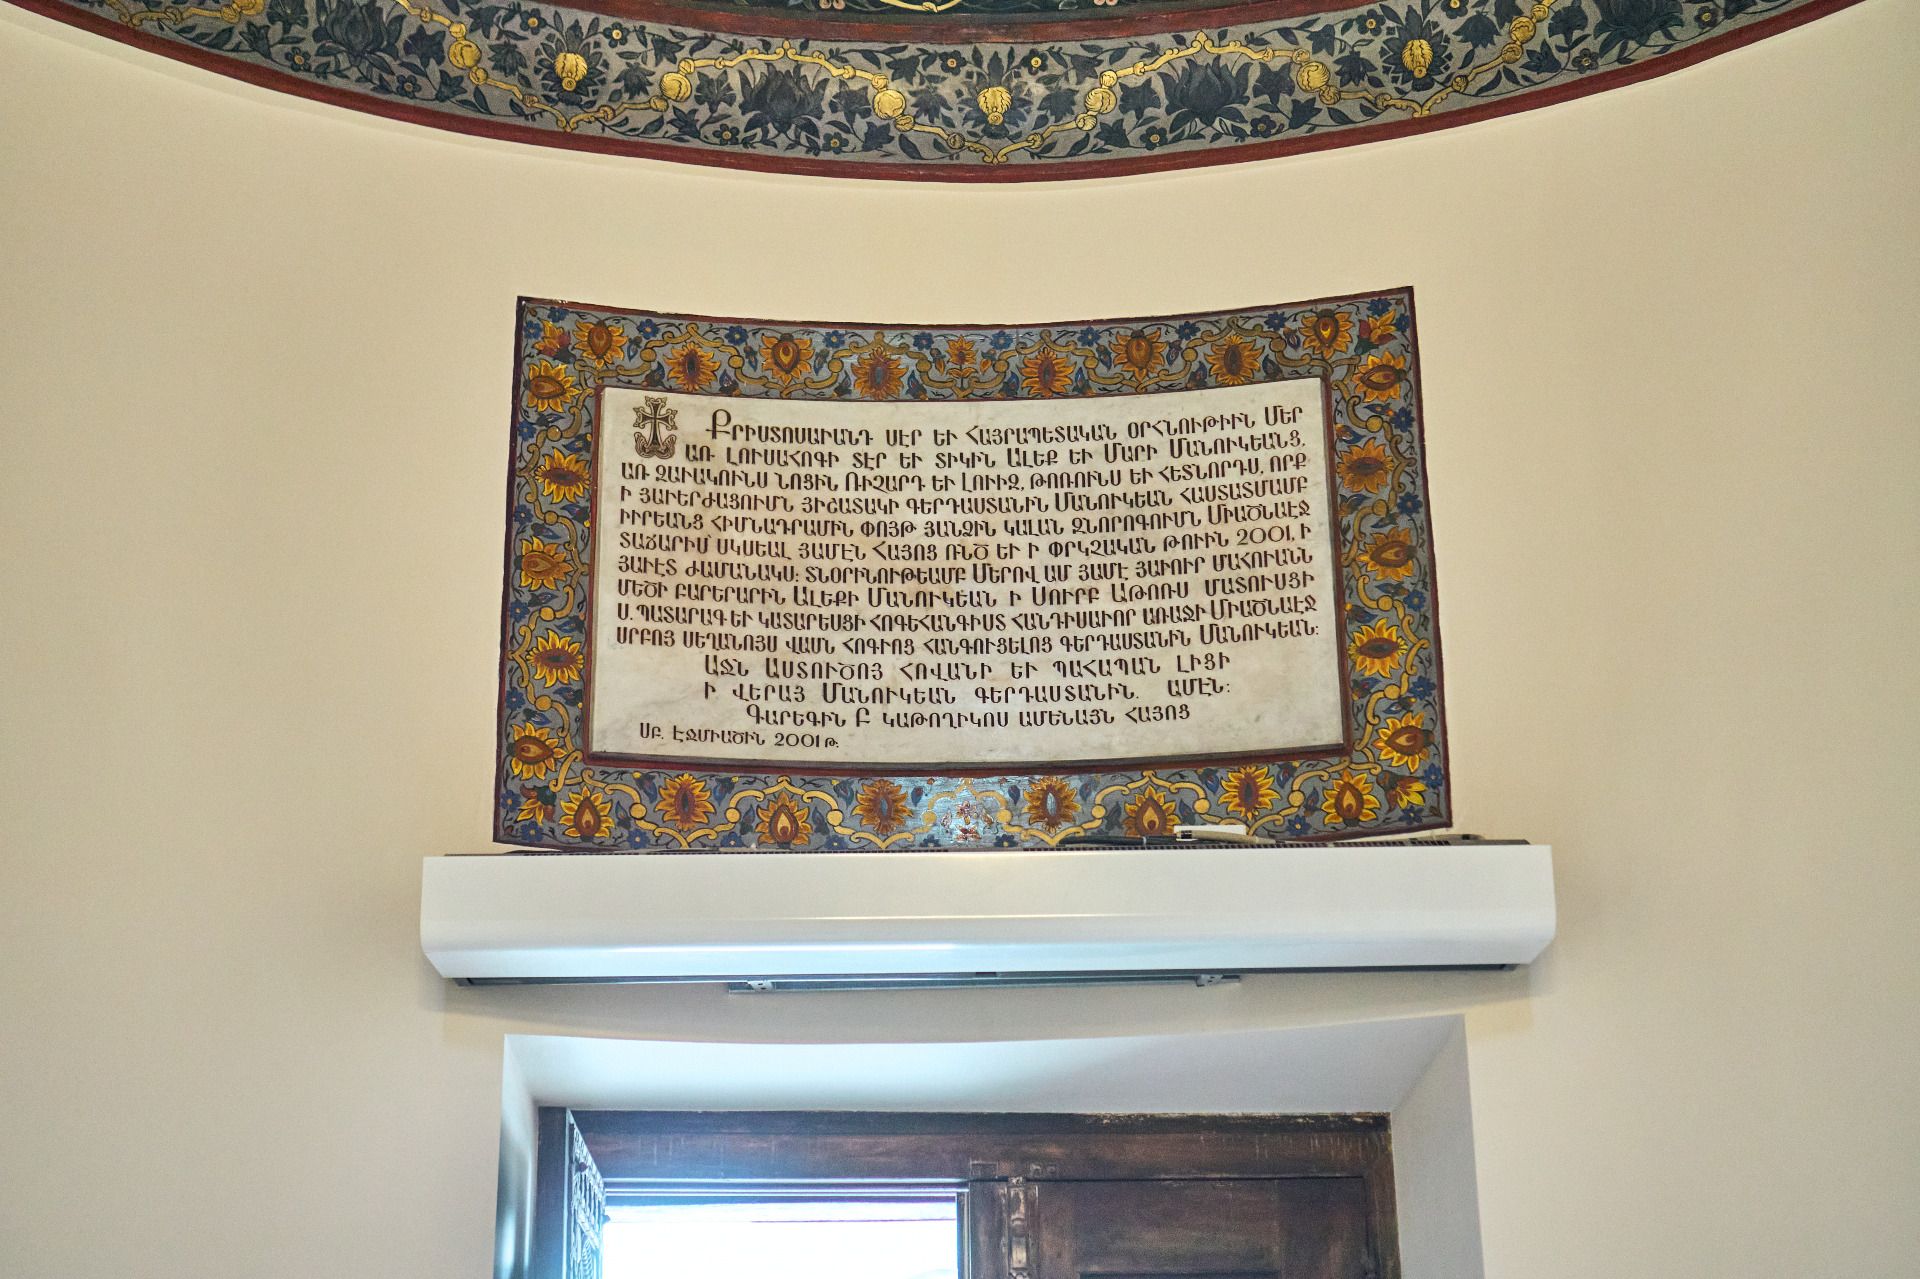 Քրիստոսաւանդ սէր եւ Հայրապետական օրհնութիւն Մեր
առ լուսահոգի տէր եւ տիկին Ալեք եւ Մարի Մանուկեանց,
առ զաւակունս նոցին Ռիչարդ եւ Լուիզ, թոռունս եւ հետնորդս, որք
ի յաւերժացումն յիշատակի գերդաստանին Մանուկեան հաստատմամբ
իւրեանց հիմնադրամին փոյթ յանձին կալան զնորոգումն Միածնաէջ
տաճարիմ՝ սկսեալ յամէն Հայոց ՌՆԾ եւ ի փրկչական թուին 2001, ի
յաւէտ ժամանակս: Տնօրինութեամբ Մերով ամ յամէ յաւուր մահուանն
մեծի բարերարին Ալեքի Մանուկեան ի Սուրբ Աթոռս մատուսցի
Ս. Պատարագ եւ կատարեսցի հոգեհանգիստ հանդիսաւոր առաջի Միածնաէջ
սրբոյ սեղանոյս վասն հոգւոց հանգուցելոց գերդաստանին Մանուկեան:
Աջն Աստուծոյ հովանի եւ պահապան լիցի
ի վերայ Մանուկեան գերդաստանին. ամէն:
Գարեգին Բ Կաթողիկոս Ամենայն Հայոց
Սբ. Էջմիածին 2001 թ.